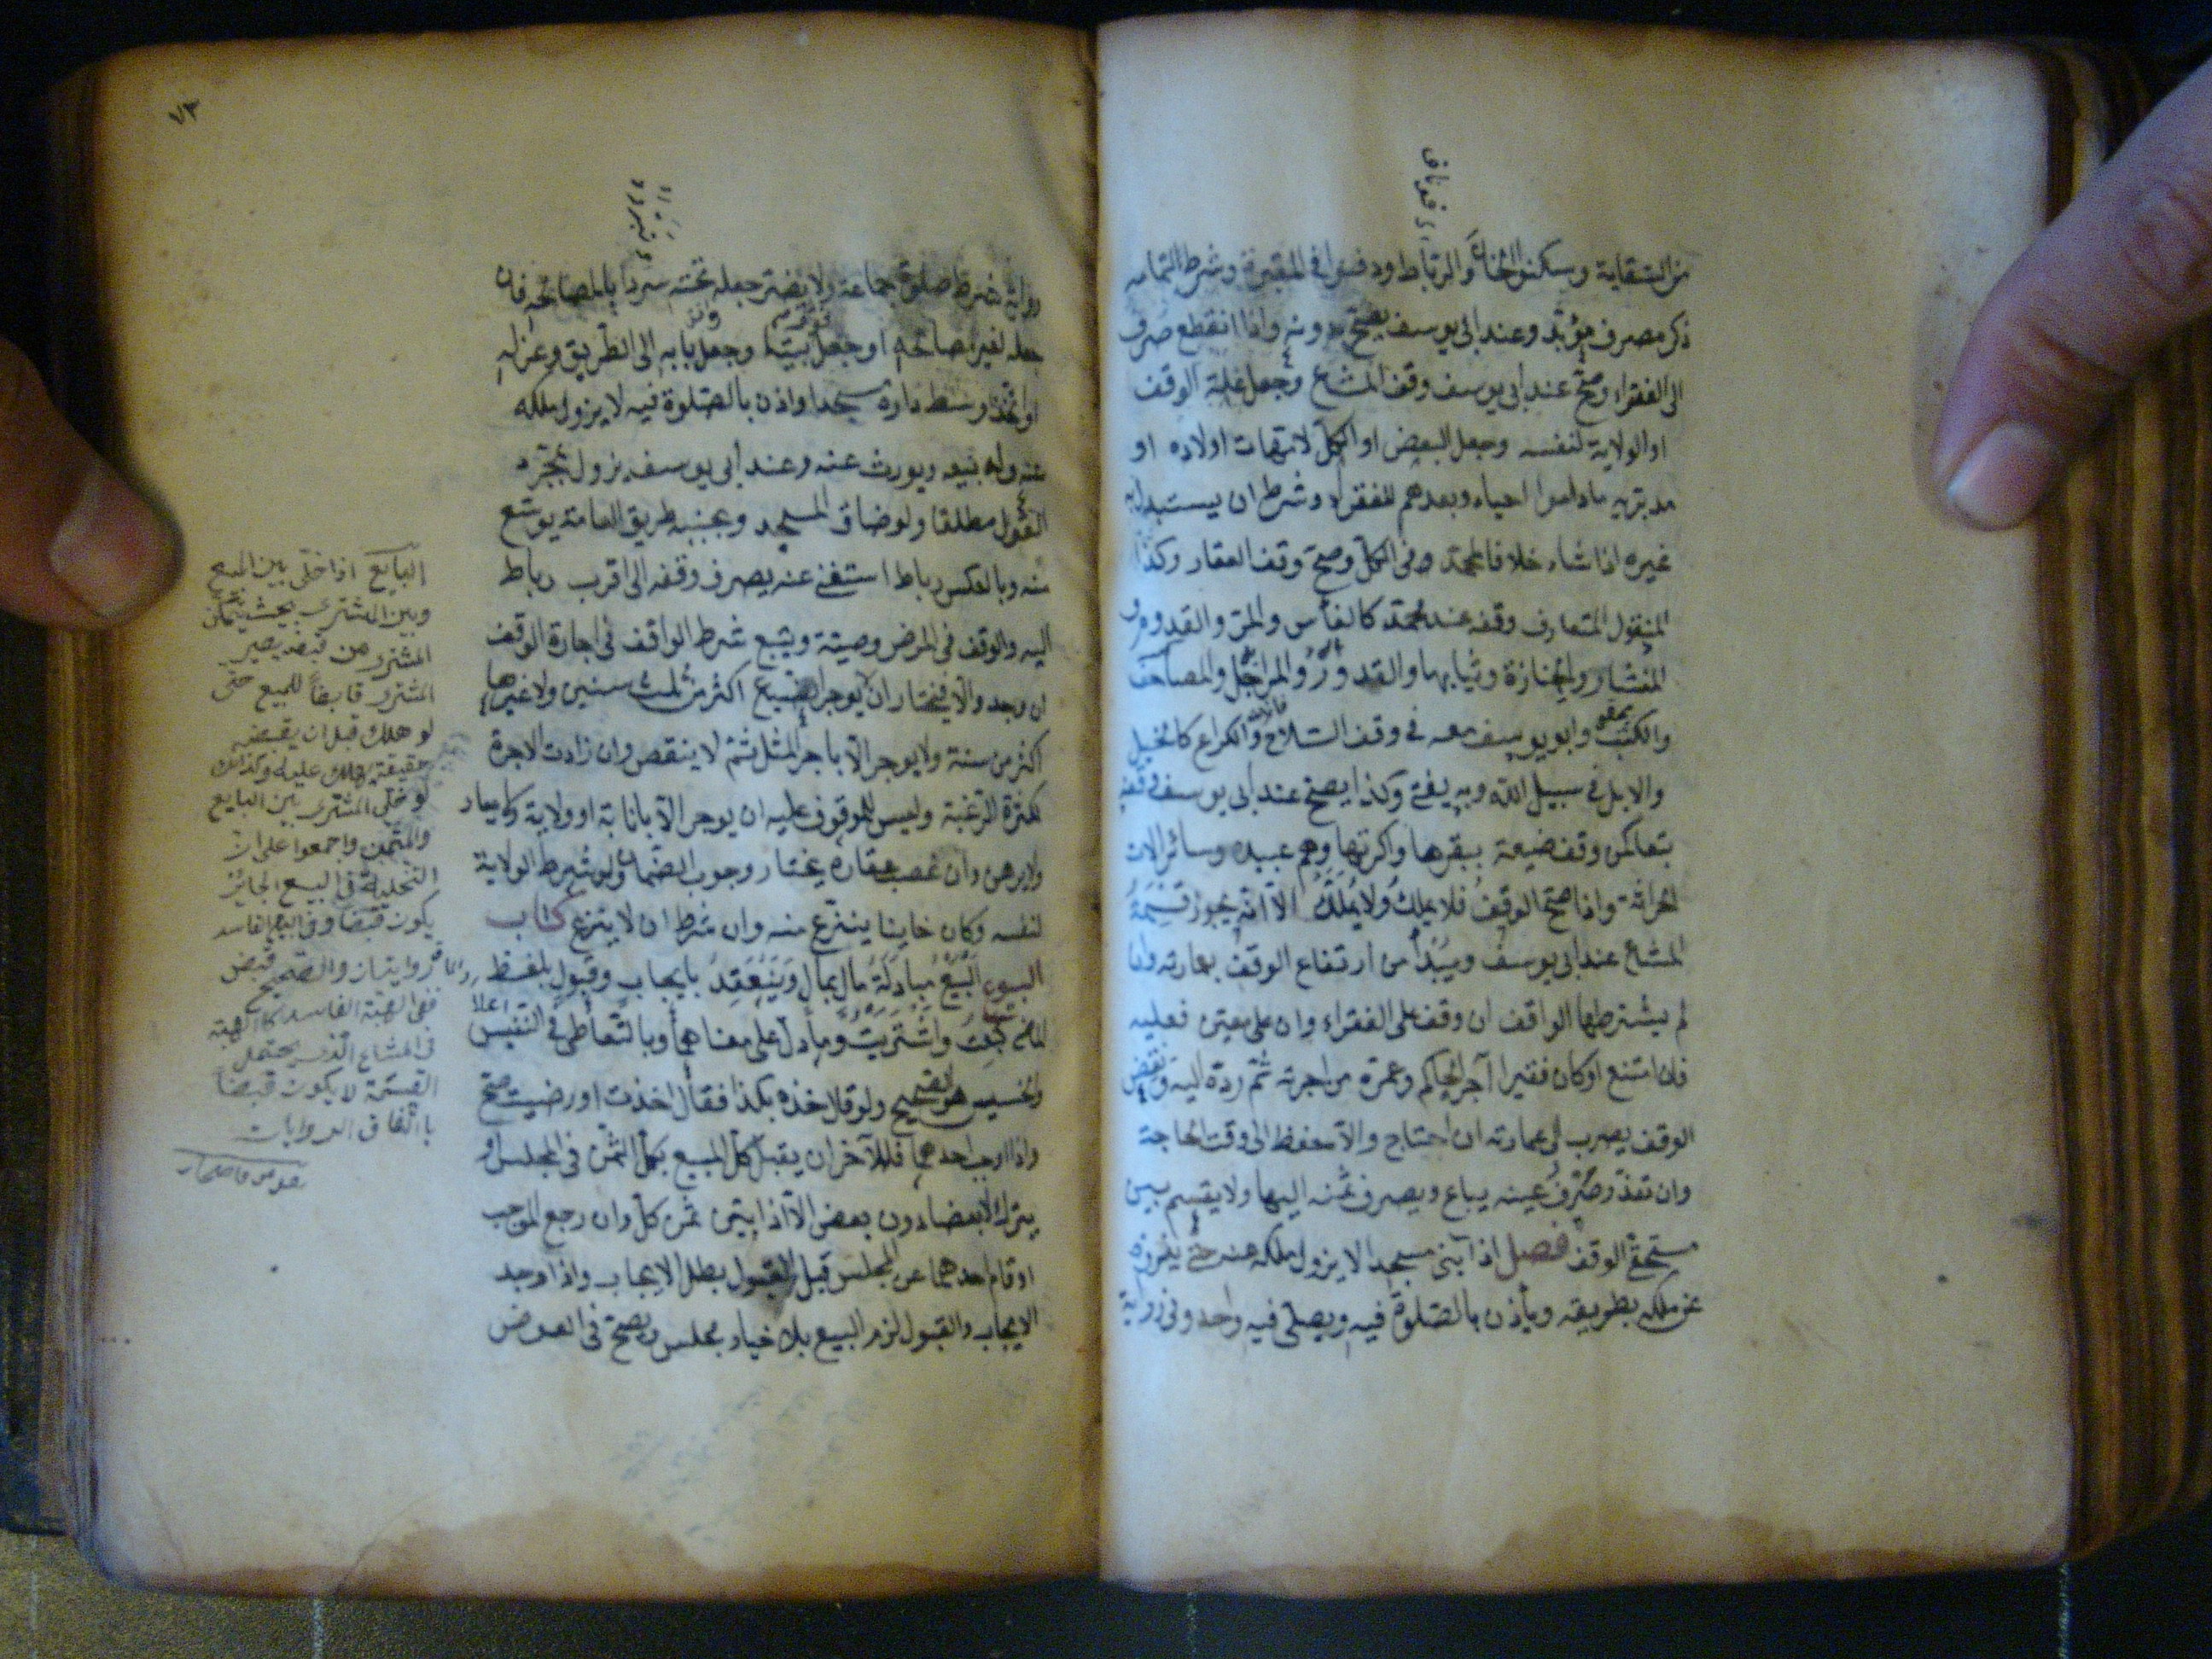 من السقاية وسكنوا الخان والرباط ودفنوا في المقبرة وشرط لتمامه
ذكر مصرف مؤبد وعند ابي يوسف يصح بدونه واذا انقطع صرف
الى الفقراء وصح عند ابي يوسف وقف المشاع وجعل غلة الوقف
او الولاية لنفسه وجعل البعض او الكل لامهات اولاده او
مدبريه ماداموا احياء وبعدهم للفقراء وشرط ان يستبدل به
غيره اذا شاء خلافا لمحمد في الكل وصح وقف العقار وكذا
المنقول المتعارف وقفه عند محمد كالفأس والمر والقدوم و
المنشار والجنازة وثيابها والقدور والمراجل والمصاحف
والكتب وابو يوسف معه في وقف السلاح والكراع كالخيل
والابل في سبيل الله وبه يفتى وكذا يصح عند ابي يوسف وقفه
تبعا كمن وقف ضيعة ببقرها واكرتها وهم عبيده وسائر الات
الحراثة واذا صح الوقف فلا يملك ولا يملك الا انه يجوز قسمة
المشاع عند ابي يوسف ويبدأ من ارتفاع الوقف بعمارته وان
لم يشترطها الواقف ان وقف على الفقراء وان على معين فعليه
فان امتنع او كان فقيرا آجر الحاكم وعمره من اجرته ثم رده اليه ونقض
الوقف يصرف الى عمارته ان احتاج والا حفظ الى وقت الحاجة
وان تعذر صرف عينه يباع ويصرف ثمنه اليها ولا يقسم بين
مستحقي الوقف فصل اذا بنى مسجدا لا يزول ملكه عنه حتى يفرزه
عن ملكه بطريقه ويأذن بالصلوة فيه ويصلى فيه واحد وفي رواية
٧٣
رواية شرط صلوة جماعة ولا يضر جعله تحته سردابا لمصالحه فان
جعله لغير مصالحه او جعل بيتا وجعل بابه الى الطريق وعزله
او اتخذ وسط داره مسجدا واذن بالصلوة فيه لا يزول ملكه
عنه وله بيعه ويورث عنه وعند ابي يوسف يزول بمجرد
القول مطلقا ولو ضاق المسجد وبجنبه طريق العامة يوسع
منه وبالعكس رباط استغنى عنه يصرف وقفه الى اقرب رباط
اليه والوقف في المرض وصية ويتبع شرط الواقف في اجارة الوقف
ان وجد والا فيختار ان لا يوجر الضياع اكثر من ثلث سنين ولا غيرها
اكثر من سنة ولا يوجر الا باجر المثل ثم لا ينقص وان زادت الاجرة
لكثرة الرغبة وليس للموقوف عليه ان يوجر الا بانابة او ولاية ولا يعار
ولا يرهن وان غصب عقاره يختار وجوب الضمان ولو شرط الولاية
لنفسه وكان خاينا ينتزع منه وان شرط ان لا ينزع كتاب
البيوع البيع مبادلة مال بمال وينعقد بايجاب وقبول بلفظ
الماضي كبعت واشتريت وما دل على معناهما وبالتعاطي في النفيس
والخسيس هو الصحيح ولو قال خذه بكذا فقال اخذت او رضيت صح
واذا اوجب احدهما فللآخر ان يقبل كل المبيع بكل الثمن في المجلس او
يترك لا بعضا دون بعض الا اذا بين ثمن كل وان رجع الموجب
او قام احدهما عن المجلس قبل القبول بطل الايجاب واذا وجد
الايجاب والقبول لزم البيع بلا خيار مجلس ويصح في العوض
البايع اذا خلى بين المبيع
وبين المشترى بحيث يتمكن
المشترى من قبضه يصير
المشترى قابضا للمبيع حتى
لو هلك قبل ان يقبضه
حقيقة يهلك عليه وكذلك
لو خلى المشترى بين البايع
والثمن واجمعوا على ان
التخلية في البيع الجائز
يكون قبضا وفي البيع الفاسد
روايتان والصحيح قبض
ففي الهبة الفاسدة كالهبة
في المشاع الذى يحتمل
القسمة لا يكون قبضا
باتفاق الروايات